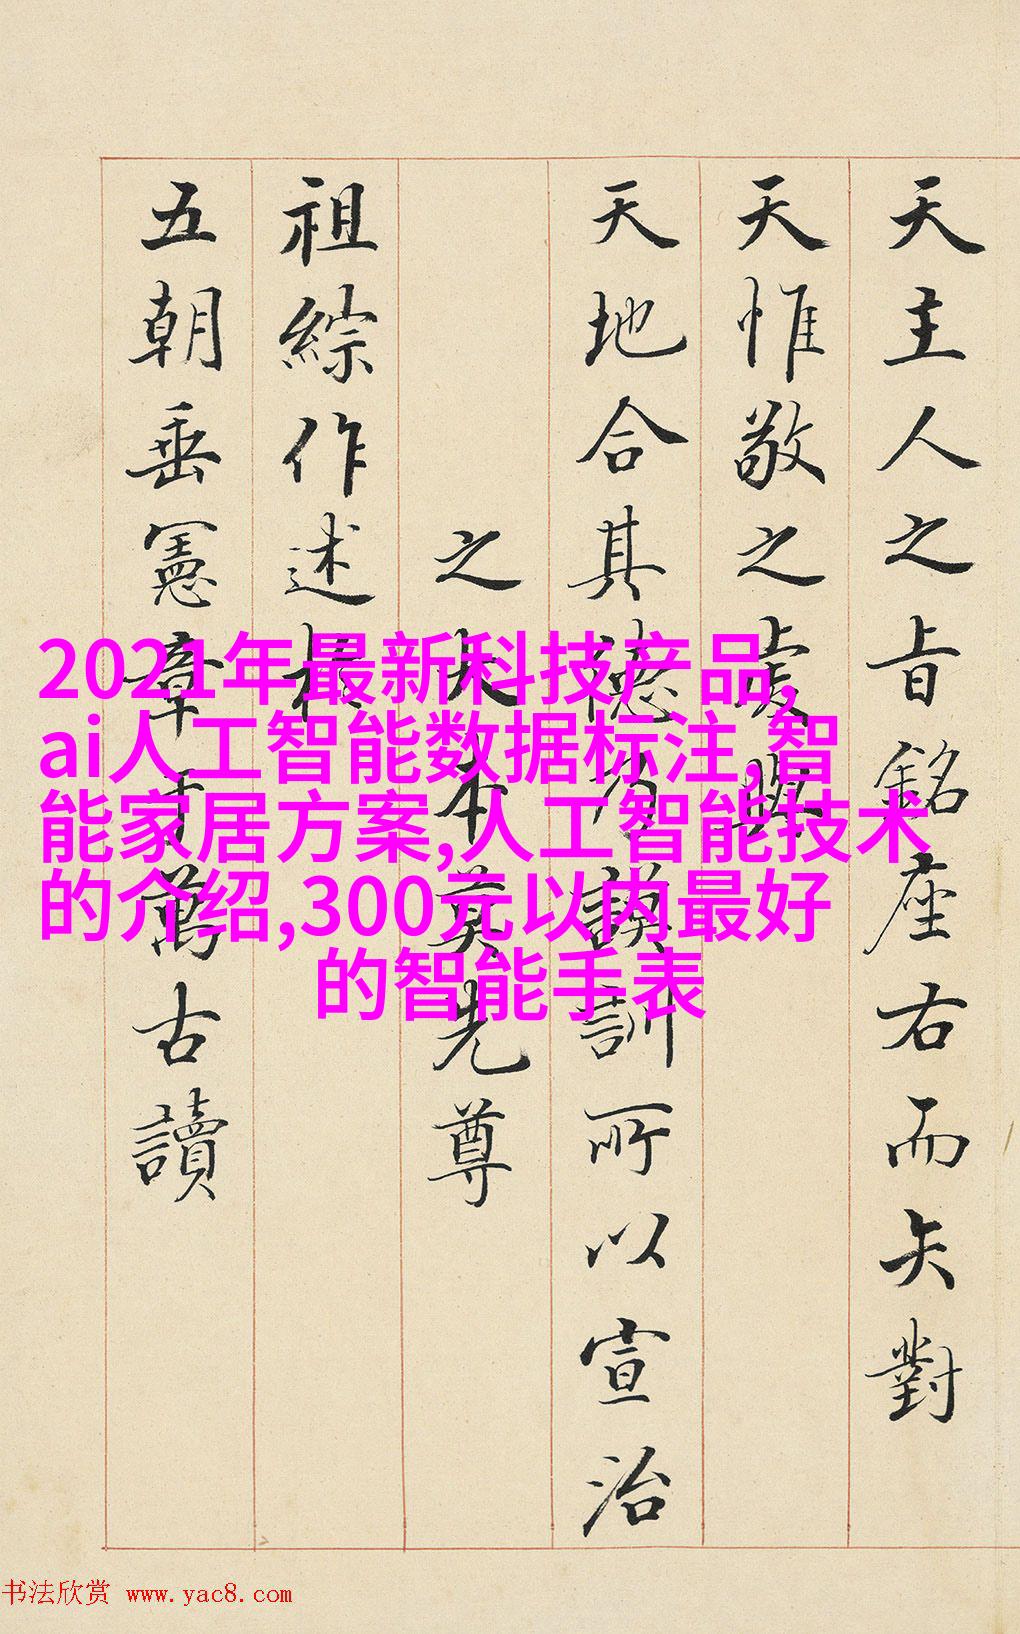 天主人之旨銘座右而矢對
天惟敬之處與
天地合其德乃謨訓所以宣治
之大本莫先尊
祖綜作述於
五朝垂憲章于萬古讀
2021年最新科技产品,
ai人工智能数据标注,智
能家居方案,人工智能技术
的介绍,300元以内最好
的智能手表
书法欣赏 www.yac8.com